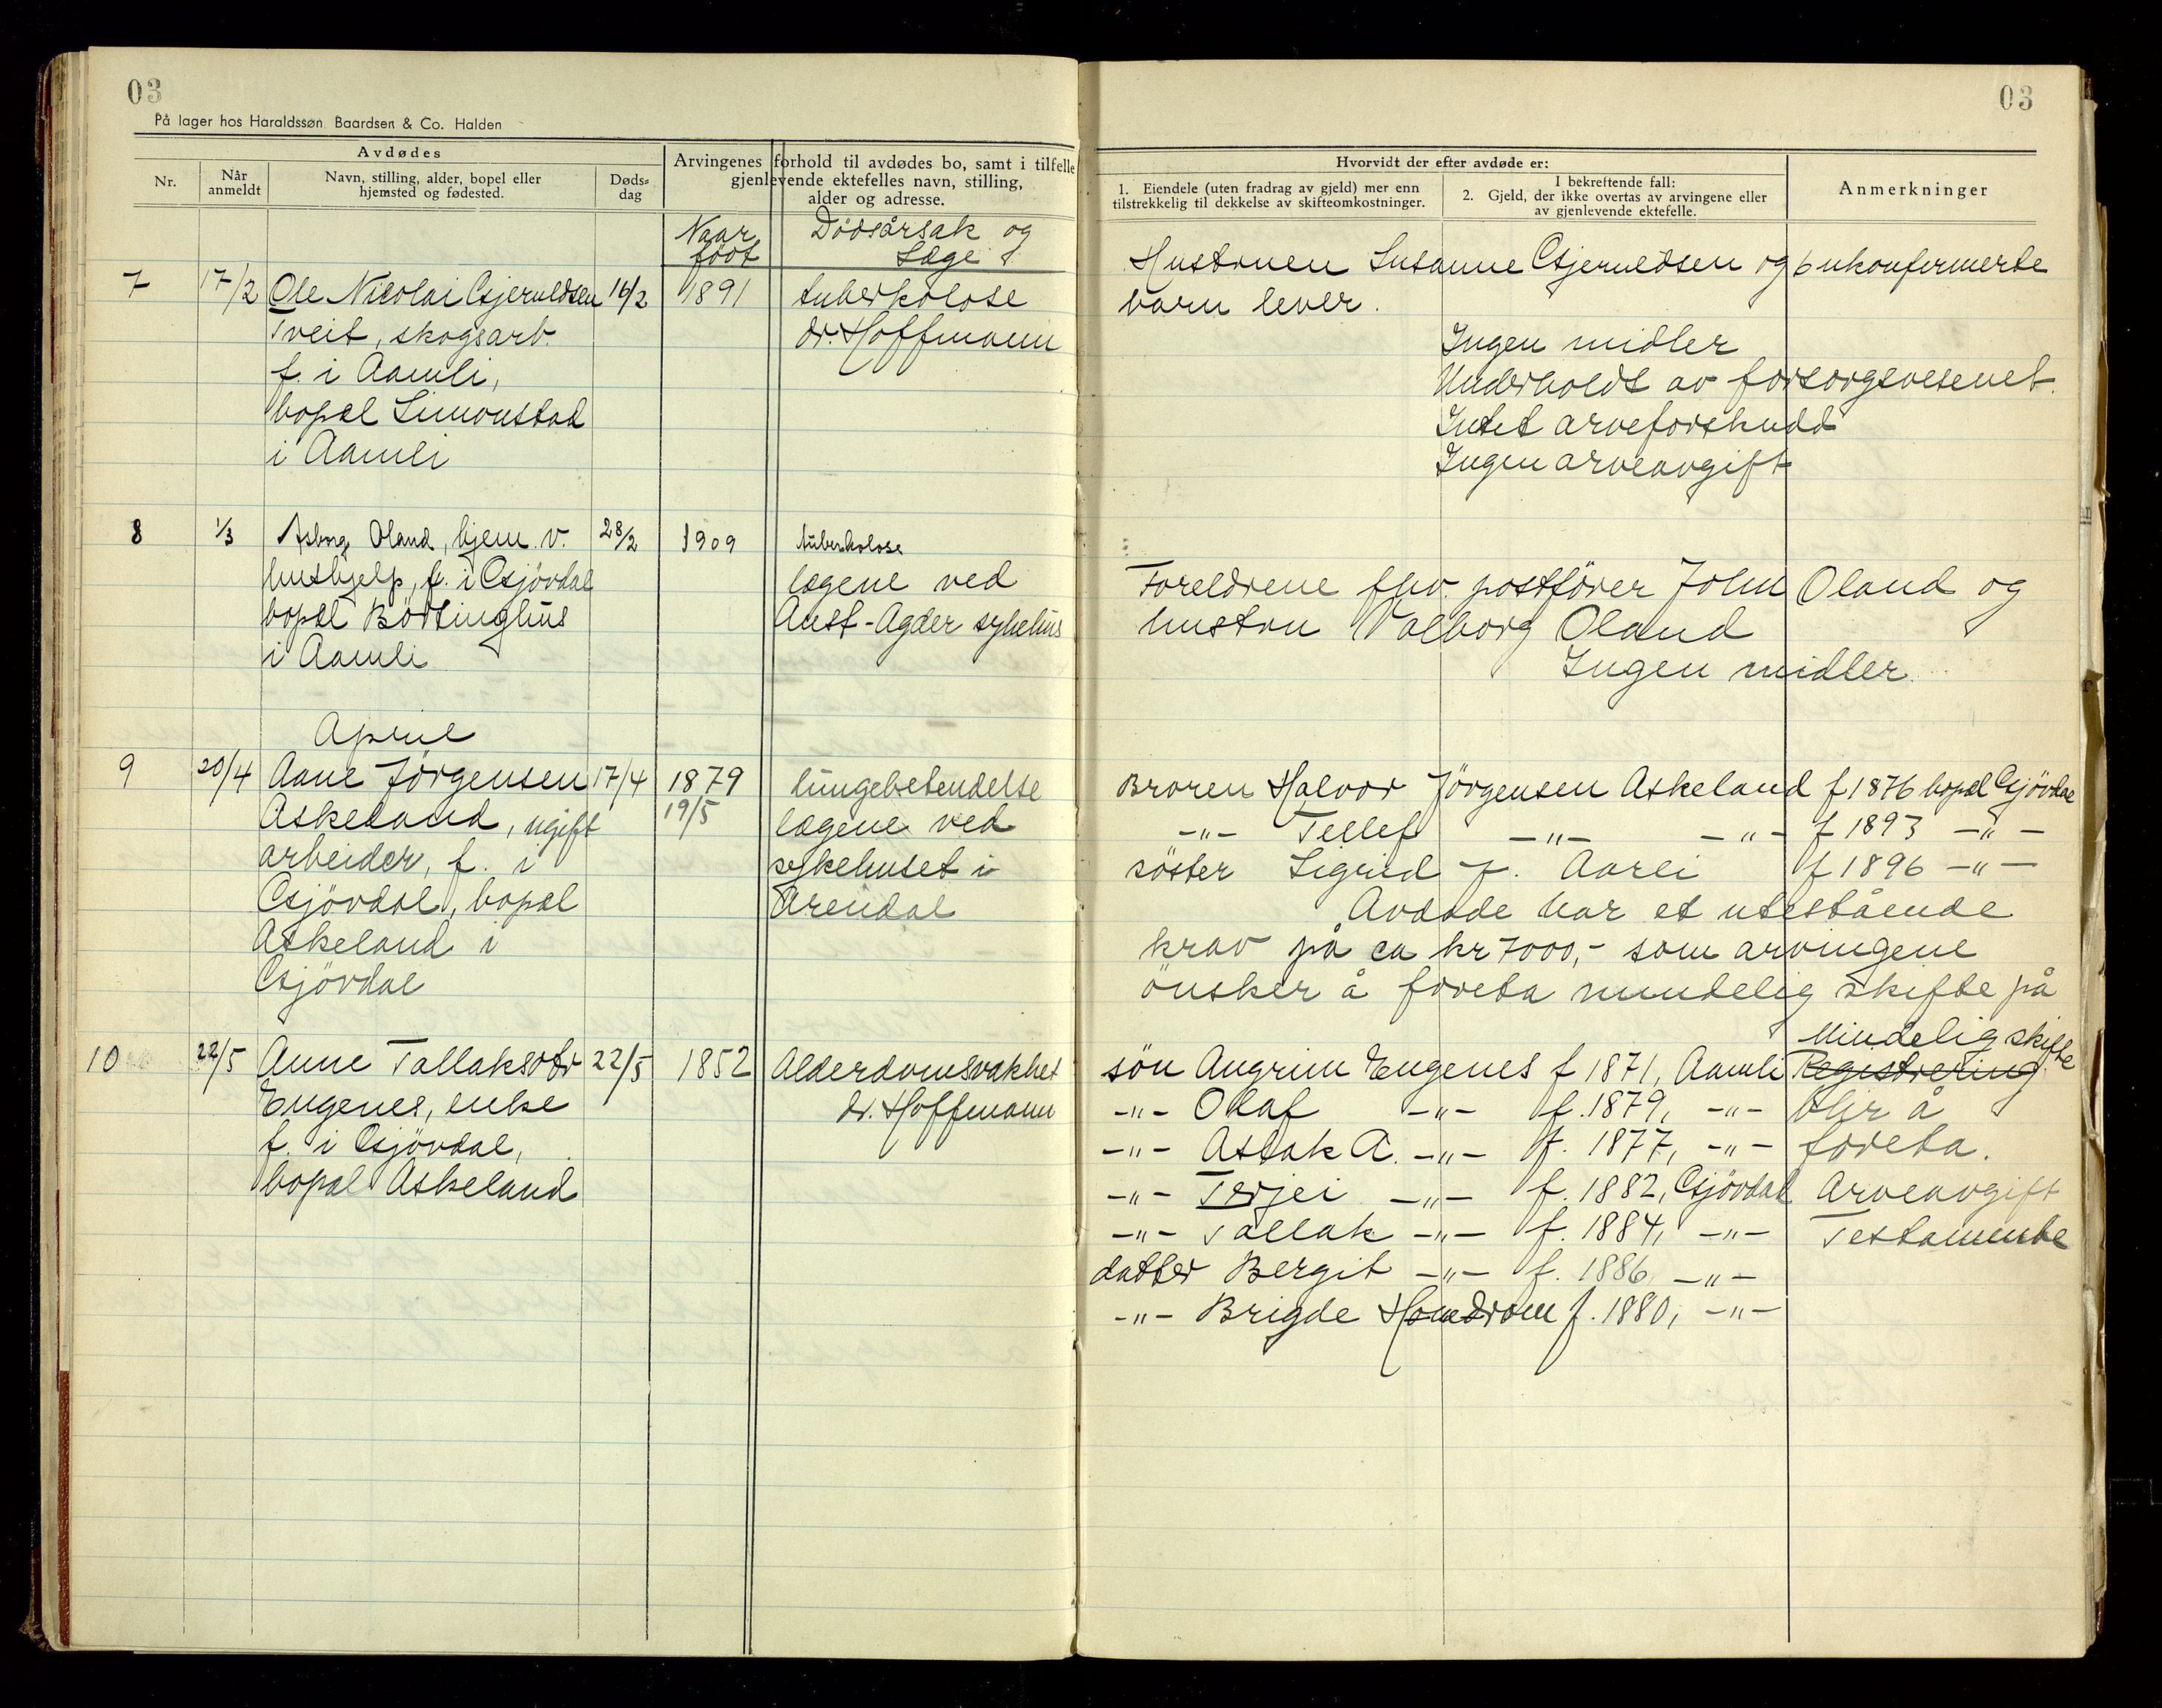 03
På lager hos Haraldssøn Baardsen & Co. Halden
Avdødes
Nr.
Når anmeldt
Navn, stilling, alder, bopel eller hjemsted og fødested.
Døds-dag
Arvingenes forhold til avdødes bo, samt i tilfelle gjenlevende ektefelles navn, stilling, alder og adresse.
Naar födt
Dödsårsak og Læge
7 17/2 Ole Nicolai Gjeruldsen 16/2 1891 tuberkolose
Tveit, skogsarb. dr. Hoffmann
f. i Aamli,
bopæl Simonstad
i Aamli
8 1/3 Asborg Oland, hjem. v. 28/2 1909 tuberkolose
hushjelp, f. i Gjövdal lægene ved
bopæl Börtinghus Aust-Agder sykehus
i Aamli
April
9 20/4 Aane Jörgensen 17/4 1879 lungebetendelse
Askeland, ugift 19/5 lægene ved
arbeider, f. i sykehuset i
Gjövdal, bopæl Arendal
Askeland i
Gjövdal
10 22/5 Anne Tallaksdtr 22/5 1852 Alderdomsvakhet
Engenes, enke dr. Hoffmann
f. i Gjövdal,
bopæl Askeland
03
Hvorvidt der efter avdøde er:
1. Eiendele (uten fradrag av gjeld) mer enn tilstrekkelig til dekkelse av skifteomkostninger.
I bekreftende fall:
2. Gjeld, der ikke overtas av arvingene eller av gjenlevende ektefelle.
Anmerkninger
Hustruen Susanne Gjeruldsen og 6 ukonfirmerte
barn lever.
Ingen midler
Underholdt av forsorgsvesenet.
Intet arveforskudd
Ingen arveavgift
Foreldrene fhv. postförer John Oland og
hustru Valborg Oland
Ingen midler
Broren Halvor Jörgensen Askeland f 1876 bopæl Gjövdal
-"- Tellef -"- -"- f 1893 -"-
söster Sigrid J. Aarli f 1896 -"-
Avdöde har et utestående
krav på ca kr 7000,- som arvingene
önsker å foreta mindelig skifte på
Mindelig skifte
sön Angrim Engenes f 1871, Aamli Registrering
-"- Olaf -"- f. 1879, -"- blir å
-"- Aslak A. -"- f. 1877, -"- foreta.
-"- Terjei -"- f. 1882, Gjövdal Arveavgift
-"- Tallak -"- f. 1884, -"- Testamente
datter Bergit -"- f. 1886, -"-
-"- Brigde Homdrom f. 1880, -"-